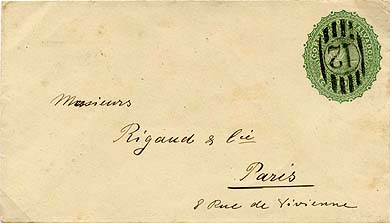 12
Messieurs
Rigaud & Cie
Paris
8 Rue de Vivienne